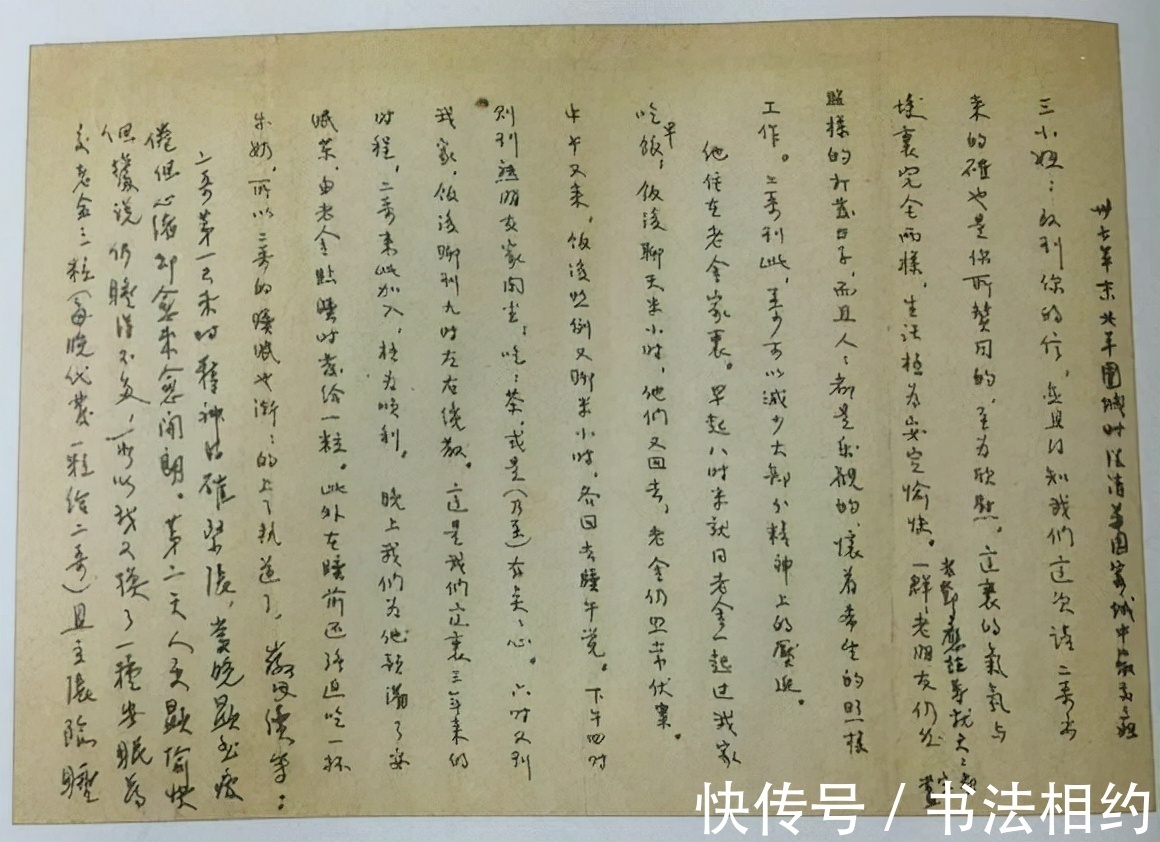 卅七年末北平围城时从清华园寄城中张兆和
三小姐：收到你的信，并且得知我们这次请二哥出
来的确也是你所赞同的，至为欣慰。这裏的氣氛与
城裏完全两樣，生活極为安定愉快。一群老朋友仍然
照樣的打發日子，而且人人都是乐觀的，懷着希望的照樣
工作。二哥到此，至少可以减少大部分精神上的壓迫。
他住在老金家裏。早起八时半就同老金一起过我家
吃早飯，飯後聊天半小时，他們又回去，老金仍照常伏案。
中午又来，飯後照例又聊半小时，各回去睡午觉。下午四时
则到熟朋友家闲坐，吃吃茶，或是（乃至）有点点心。六时又到
我家，飯後聊到九时左右纔散。这是我们这裏三年来的
时程，二哥来此加入，極为顺利。晚上我们为他预备了安
眠藥，由老金临睡时發给一粒。此外在睡前还强迫吃一杯
牛奶，所以二哥的睡眠也漸漸的上了軌道了，
二哥第一天来时精神的確緊張，當晚显出疲
倦但心绪却愈来愈開朗。第二天人更显愉快
但據说仍睡得不多，所以我又换了一種安眠药
交老金三粒（每晚代發一粒给二哥）且主張臨睡
快传号 / 书法相约